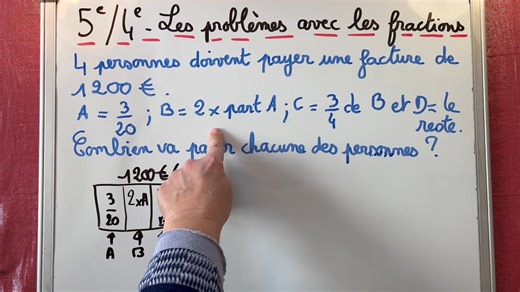 5e/4e - Les problèmes avec les fractions
4 personnes doivent payer une facture de
1200 €.
A = 3/20 ; B = 2 x part A ; C = 3/4 de B et D = le
reste.
Combien va chacune des personnes ?
1200 €
3/20 2xA
A B